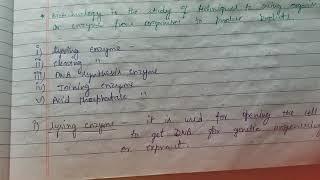 * Biotechnology is the study of techniques to using organism
or enzyme from organism to produce product
i) Lysing enzyme -
ii) cleaving "
iii) DNA Synthesis enzyme
iv) Joining enzyme
v) Acid phosphatate "
i) Lysing enzyme - it is used for opening the cell
to get DNA for genetic engineering
or